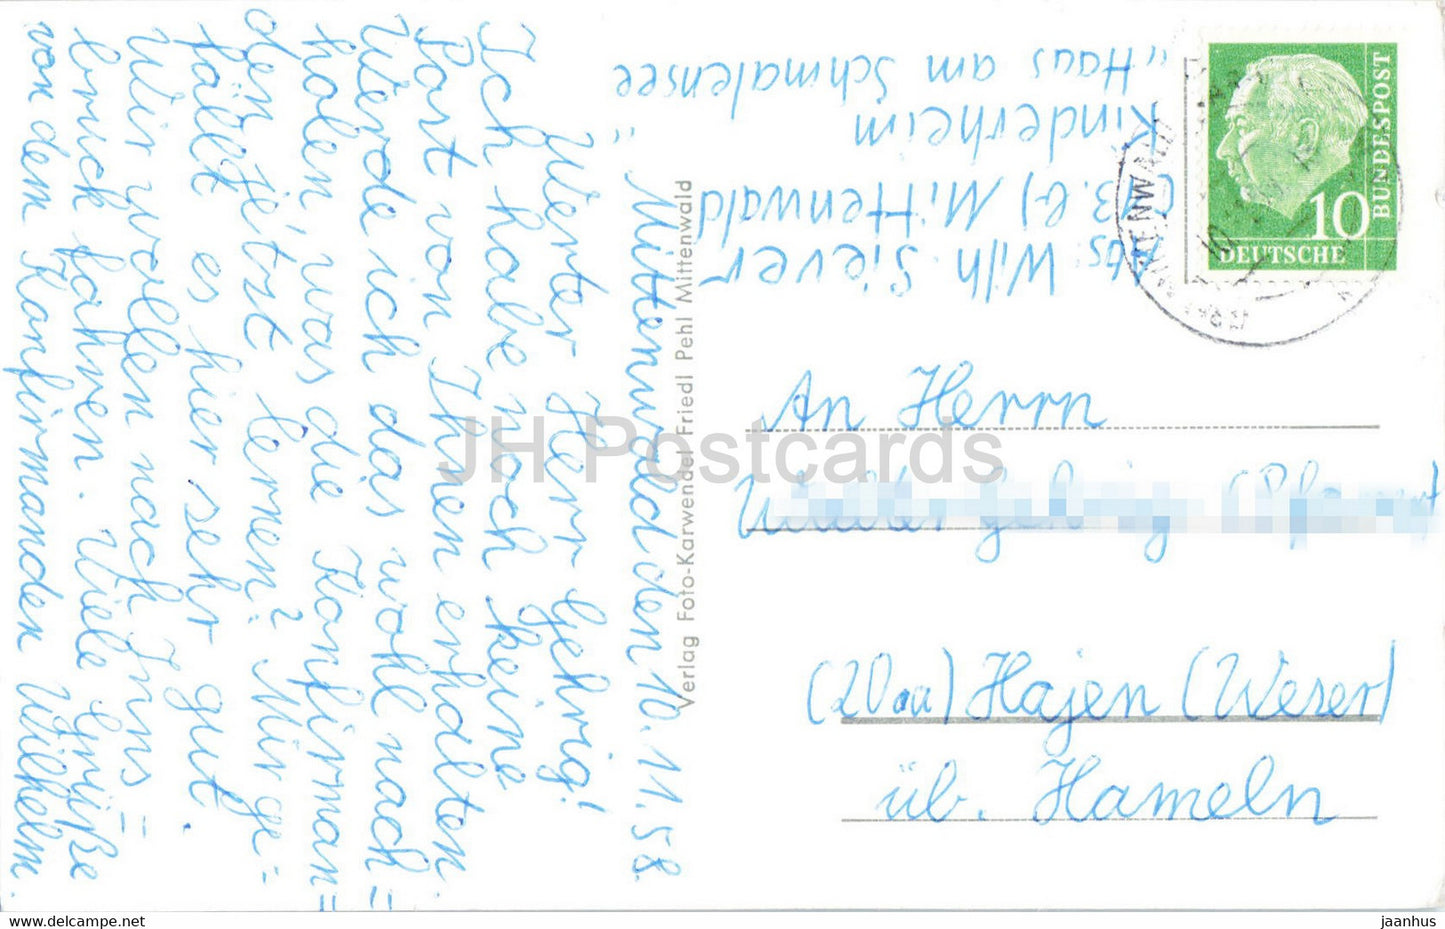 Mittenwald den 10.11.58.
Werter Herr Gehrig!
Ich habe noch keine
Post von Ihnen erhalten.
Werde ich das wohl nach=
holen, was die Konfirman=
den jetzt lernen? Mir ge=
fällt es hier sehr gut.
Wir wollen nach Inns=
bruck fahren. Viele Grüße
von dem Konfirmanden Wilhelm.
Abs: Wilh. Siever
(13 b) Mittenwald
Kinderheim
"Haus am Schmalensee"
Verlag Foto-Karwendel Friedl Pehl Mittenwald
DEUTSCHE
BUNDESPOST
10
MITTENWALD
An Herrn
(20a) Hajen (Weser)
üb. Hameln
JH Postcards
www.delcampe.net
jaanhus